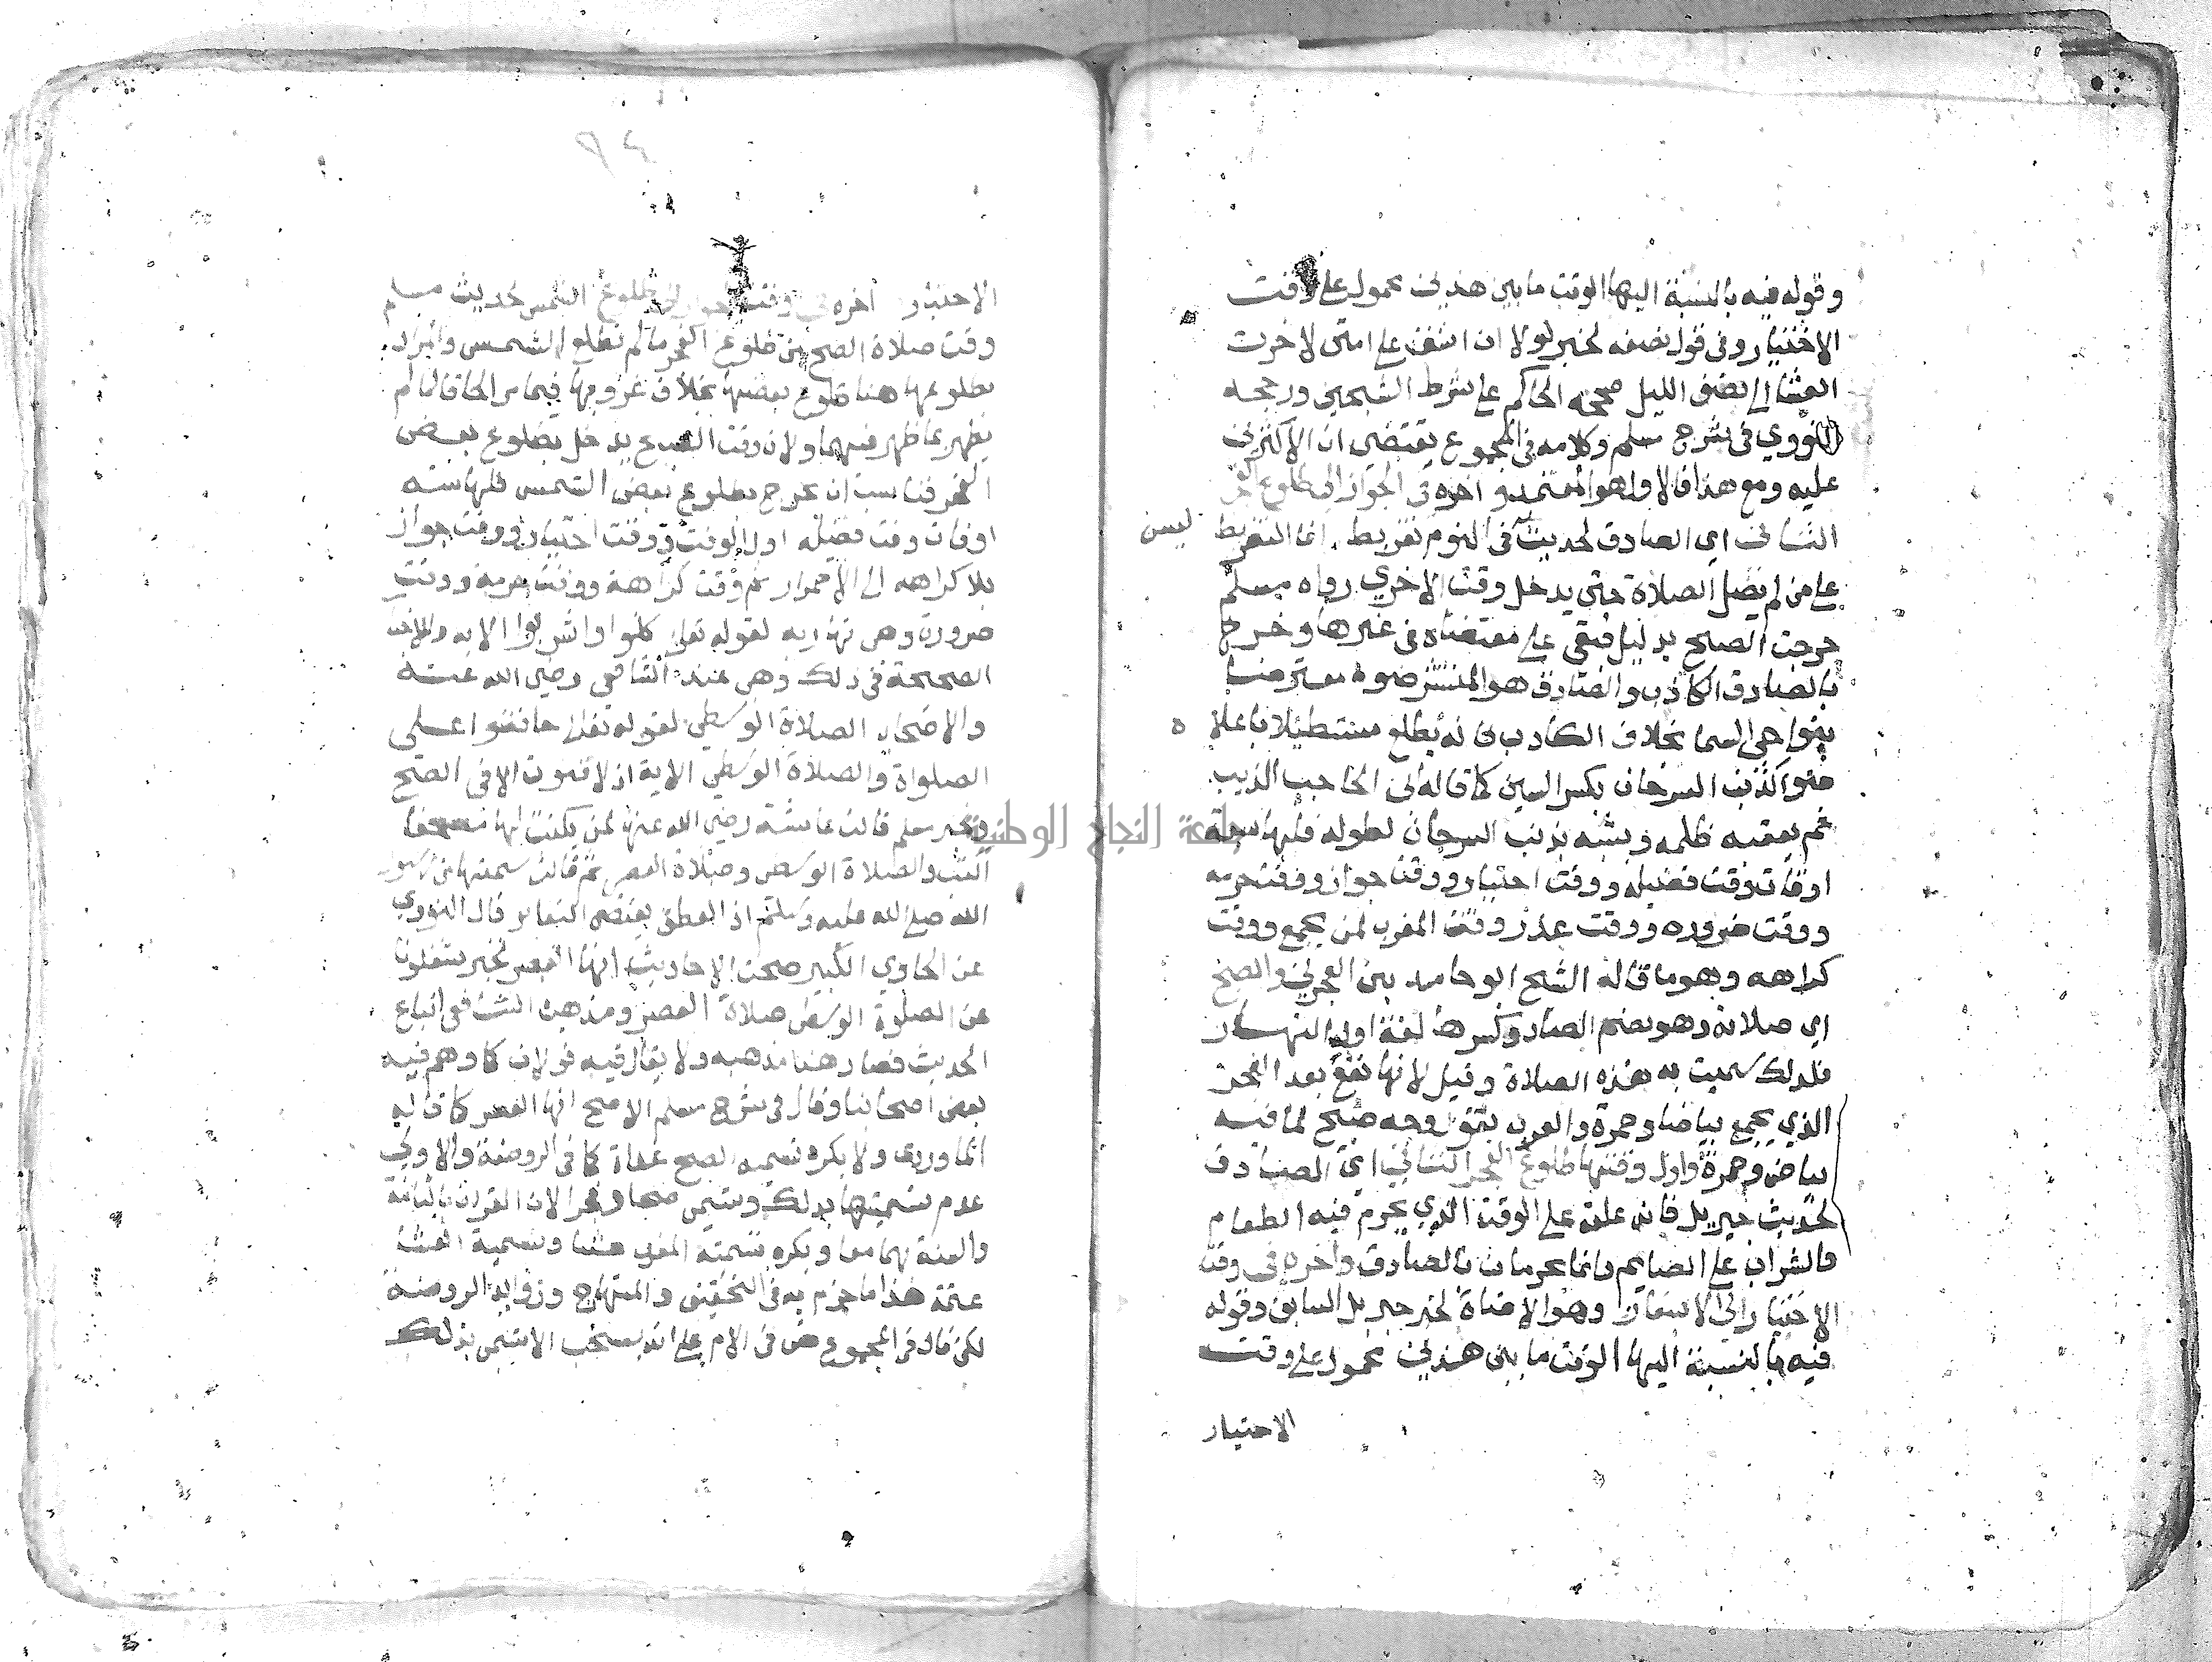 وقوله فيه بالنسبة اليها الوقت ما بين هذين محمول على وقت
الاختيار وفي قول نصفه لخبر لولا ان اشق على امتي لاخرت
العشا الى نصف الليل صححه الحاكم على شرط الشيخين ورجحه
النووي في شرح مسلم وكلامه في المجموع يقتضي ان الاكثرين
عليه ومع هذا فالاول هو المعتمد و اخره في الجواز الى طلوع الفجر
الثاني اي الصادق لحديث ليس في النوم تفريط انما التفريط
على من لم يصل الصلاة حتى يدخل وقت الاخري رواه مسلم
خرجت الصبح بدليل فبقي على مقتضاه في غيرها وخرج
بالصادق الكاذب والصادق هو المنتشر ضوه معترضا
بنواحي السما بخلاف الكاذب فانه يطلع مستطيلا باعلاه
ضو كذنب السرحان بكسر السين كما قاله ابن الحاجب الذيب
ثم يعقبه ظلمه ويشبه بذنب السرحان لطوله فلها سبعة
اوقات وقت فضيله ووقت اختيار ووقت جواز ووقت حرمه
ووقت ضروره ووقت عذر وقت المغرب لمن يجمع ووقت
كراهه وهو ما قاله الشيخ ابو حامد بين الفجرين والصبح
اي صلاته وهو بضم الصاد وكسرها لغة اول النهار
فلذلك سميت به هذه الصلاة وقيل لانها تقع بعد الفجر
الذي يجمع بياضا وحمرة والعرب يقول وجه صبيح لما فيه
بياض وحمرة واول وقتها طلوع الفجر الثاني اي الصادق
لحديث جبريل فانه علقه على الوقت الذي يحرم فيه الطعام
والشراب على الصايم وانما يحرمان بالصادق واخره في وقت
الاختيار الى الاسفار وهو الاضاة لخبر جبريل السابق وقوله
فيه بالنسبة اليها الوقت ما بين هذين محمول على وقت
الاختيار
الاختيار اخره في وقت الجواز الى طلوع الشمس لحديث مسلم
وقت صلاة الصبح من طلوع الفجر ما لم تطلع الشمس والمراد
بطلوعها هنا طلوع بعضها بخلاف غروبها فيما مر الحاقا لما لم
يظهر بما ظهر فيهما ولان وقت الصبح يدخل بطلوع بعض
الفجر فناسب ان يخرج بطلوع بعض الشمس فلها ستة
اوقات وقت فضيله اول الوقت ووقت اختيار ووقت جواز
بلا كراهه الى الاحمرار ثم وقت كراهة ووقت حرمة ووقت
ضرورة وهي نهاريه لقوله تعالى كلوا واشربوا الايه وللاخبار
الصحيحة في ذلك وهي عند الشافعي رضي الله عنه
والاصحاب الصلاة الوسطى لقوله تعالى حافظوا على
الصلوات والصلاة الوسطى الاية اذ لا قنوت الا في الصبح
ولخبر مسلم قالت عايشة رضي الله عنها لمن يكتب لها مصحفا
اكتب والصلاة الوسطى وصلاة العصر ثم قالت سمعتها من رسول
الله صلى الله عليه وسلم اذ العطف يقتضي التغاير قال النووي
عن الحاوي الكبير صحت الاحاديث انها العصر لخبر شغلونا
عن الصلوة الوسطى صلاة العصر ومذهب الشافعي اتباع
الحديث فصار هذا مذهبه ولا يقال فيه قولان كما وهم فيه
بعض اصحابنا وقال في شرح مسلم الاصح انها العصر كما قاله
الماوردي ولا يكره تسميه الصبح غداة كما في الروضة والاولى
عدم تسميتها بذلك وتسمى صبحا وفجرا لان القران بالثانية
والسنة بهما معا ويكره تسمية المغرب عشا وتسمية العشا
عتمة هذا ما جزم به في التحقيق والمنهاج وزوايد الروضة
لكن قال في المجموع نص في الام على انه يستحب الا تسمى بذلك
جامعة النجاح الوطنية